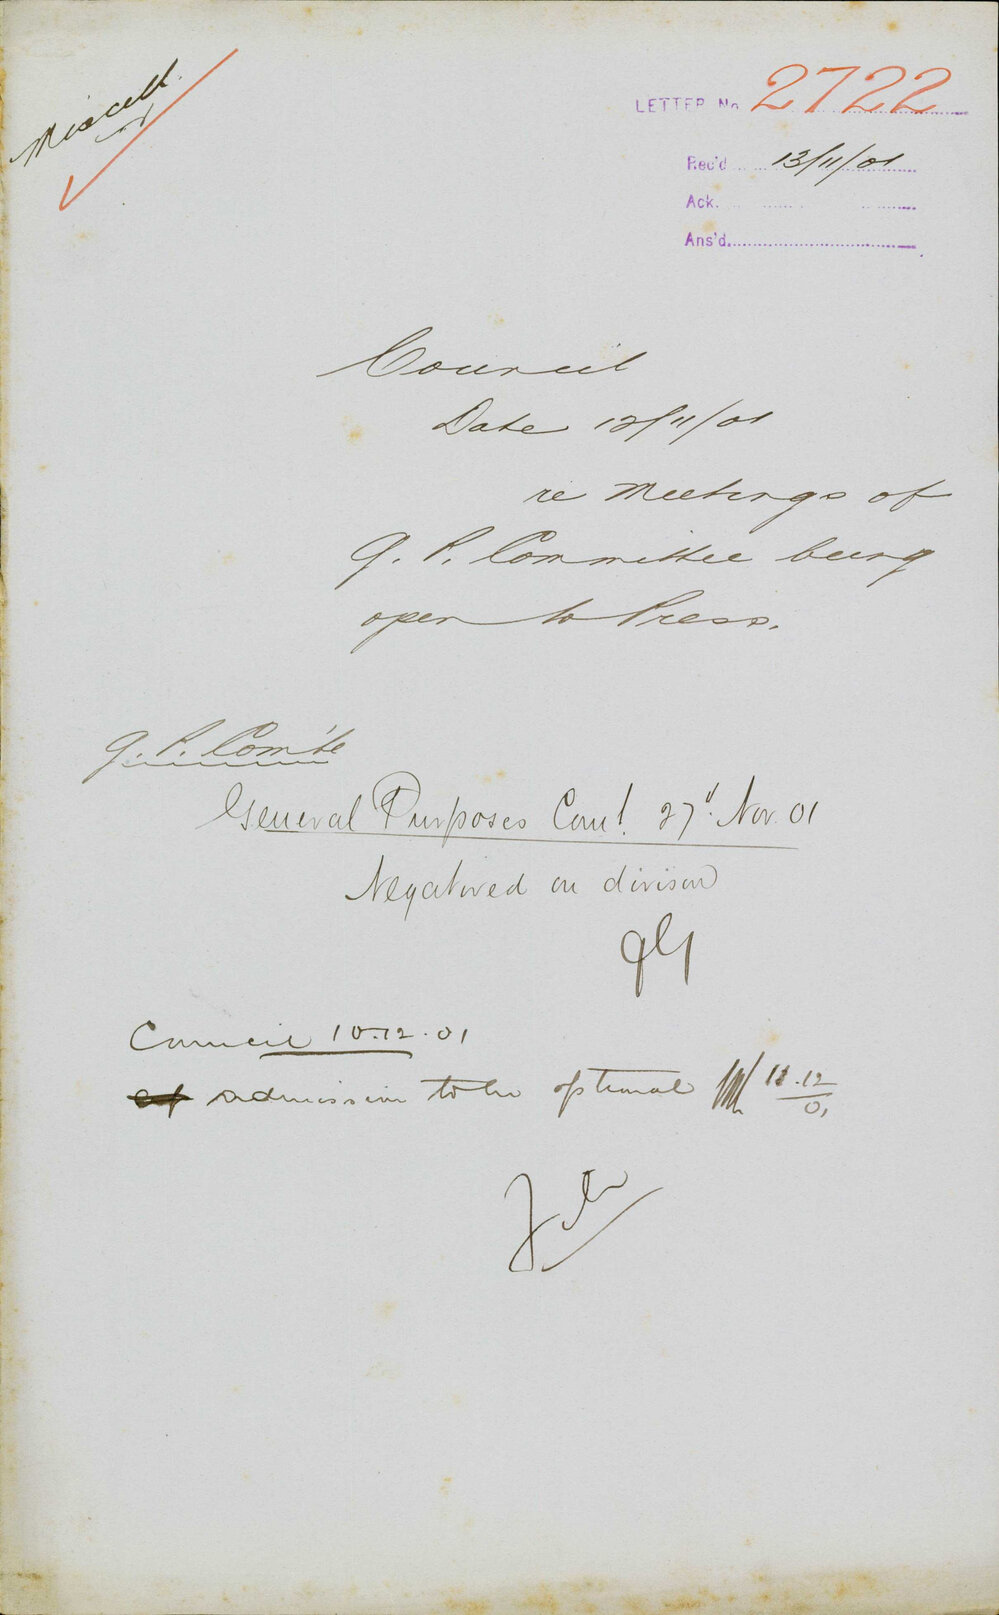 Miscell.
LETTER No. 2722
Rec'd 13/11/01
Ack.
Ans'd.
Council
Date 12/11/01
re Meetings of
G. P. Committee being
open to Press.
G. P. Com'te
General Purposes Com! 27" Nov. 01
Negatived on division
Council 10.12.01
admission to be optional 11.12/01
File